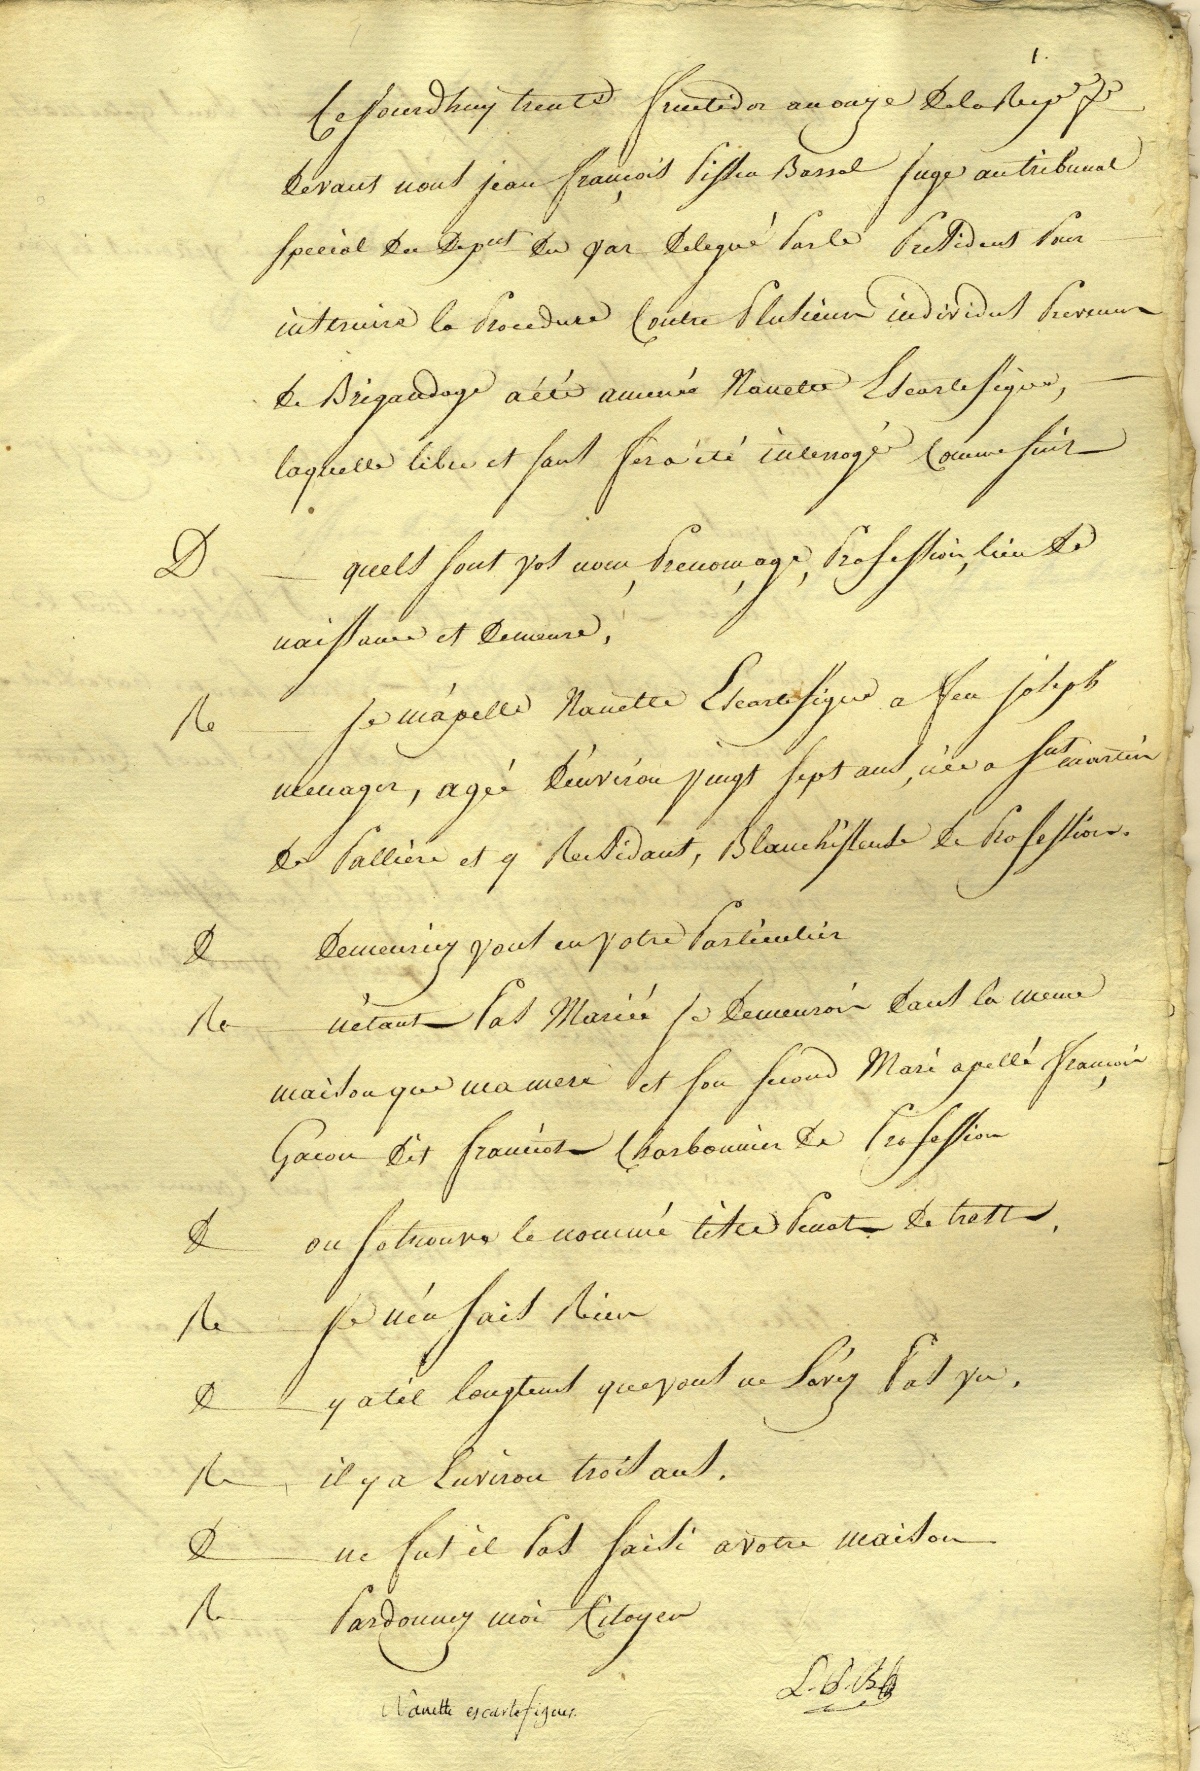 1.
Ce Jourdhuy trente fructidor an onze de la Rep.e f.se
devant nous jean françois Bassal Juge au tribunal
special du Dep.nt du Var delegué Par le President Pour
instruire la Procedure Contre Plusieurs individus Prevenus
de Brigandage a été amenée Nanette Escartefigue,
laquelle libre et sans fers a été interrogé Comme suit
D quels sont vos nom, Prenom, age, Profession, lieu de
naissance et demeure,
Re Je m'apelle Nanette Escartefigue a feu joseph
menager, agée d'environ vingt sept ans, née a S.nt martin
de Pallière et y Residant, Blanchisseuse de Profession.
D demeuriez vous en votre Particulier
Re n'etant Pas Mariée je demeurois dans la meme
maison que ma mere et son second Mari apellé françois
Gacon dit franciot Charbonnier de Profession
D ou se trouve le nommé titre Penat de trets,
Re Je n'en sais Rien
D y a til longtems que vous ne L'avez Pas vu,
Re il y a Environ trois ans.
D ne fut il Pas saisi a votre maison
Re Pardonnez moi Citoyen
Nanette escartefigues.